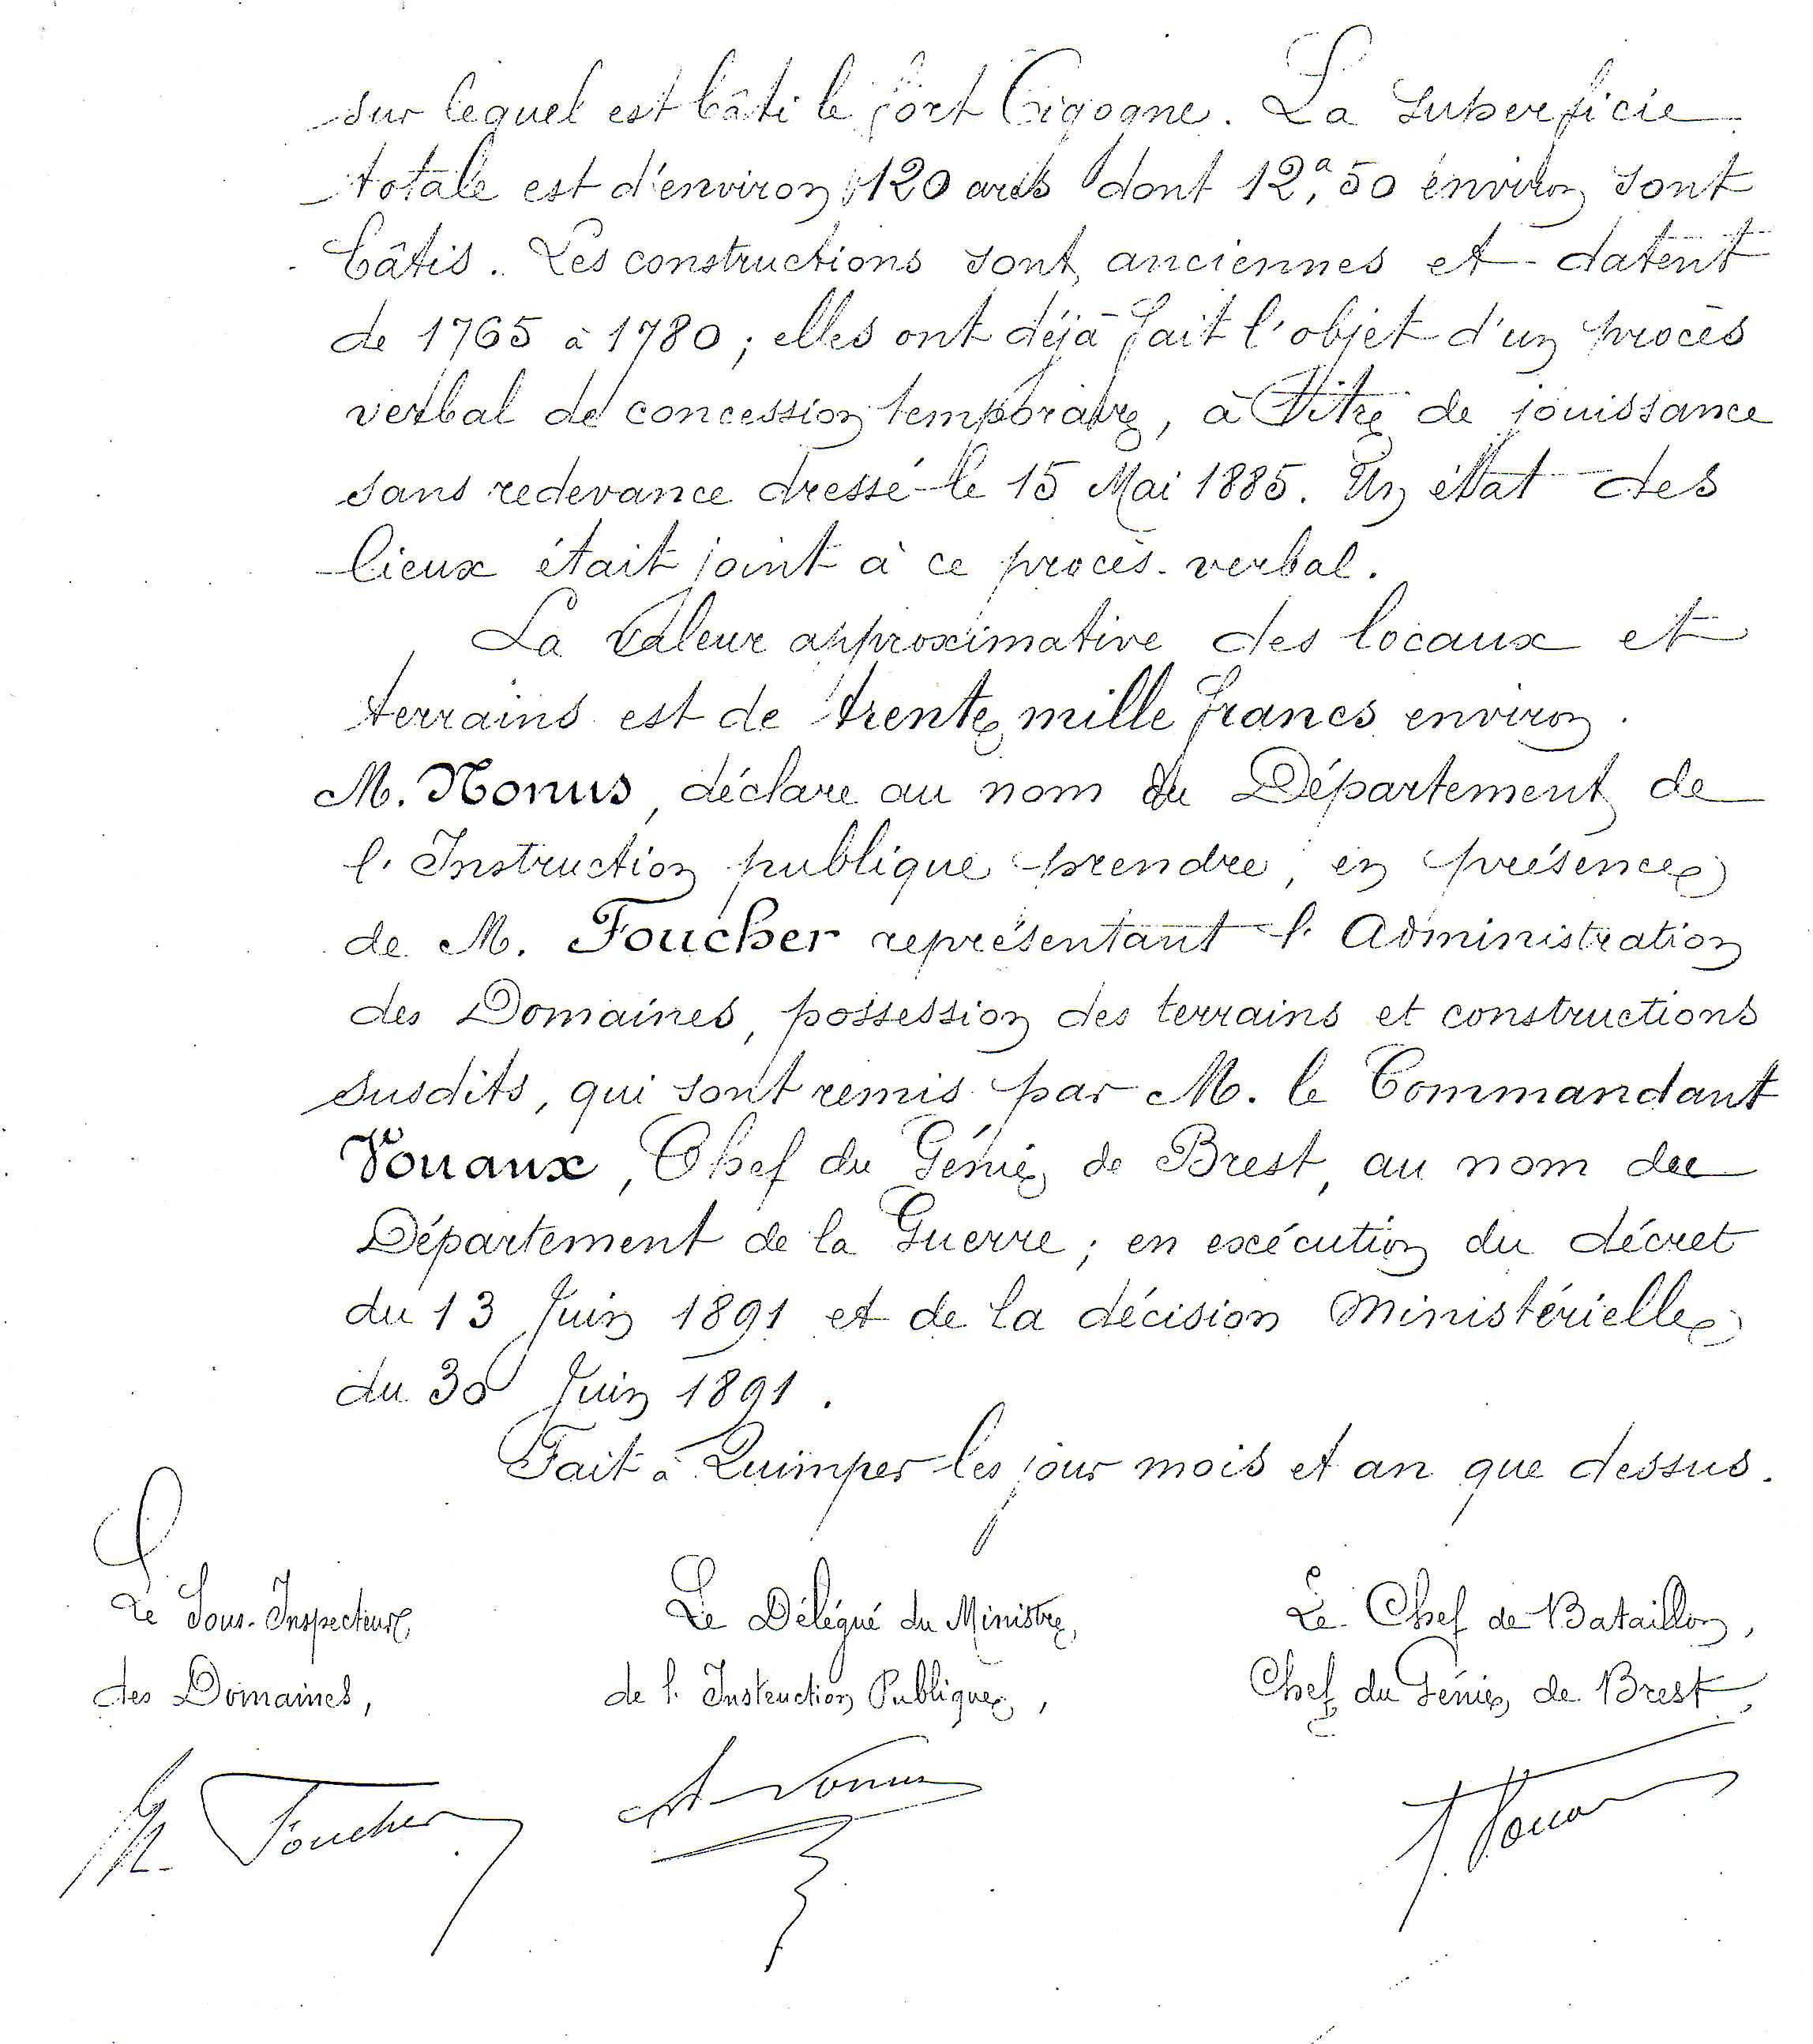 sur lequel est bâti le fort Cigogne. La superficie
totale est d'environ 120 ares dont 12,ᵃ50 environ sont
bâtis. Les constructions sont anciennes et datent
de 1765 à 1780; elles ont déjà fait l'objet d'un procès
verbal de concession temporaire, à titre de jouissance
sans redevance dressé le 15 Mai 1885. Un état des
lieux était joint à ce procès-verbal.
La valeur approximative des locaux et
terrains est de trente mille francs environ.
M. Nonus, déclare au nom du Département de
l'Instruction publique prendre, en présence
de M. Foucher représentant l'Administration
des Domaines, possession des terrains et constructions
susdits, qui sont remis par M. le Commandant
Vouaux, Chef du Génie de Brest, au nom du
Département de la Guerre; en exécution du décret
du 13 Juin 1891 et de la décision Ministérielle
du 30 Juin 1891.
Fait à Quimper les jour mois et an que dessus.
Le Sous-Inspecteur
des Domaines,
Foucher
Le Délégué du Ministre
de l'Instruction Publique,
A Nonus
Le Chef de Bataillon,
Chef du Génie de Brest,